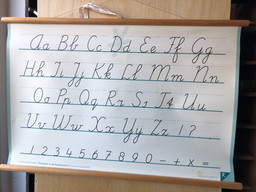 Aa Bb Cc Dd Ee Ff Gg
Hh Ii Jj Kk Ll Mm Nn
Oo Pp Qq Rr Ss Tt Uu
Vv Ww Xx Yy Zz ! ?
1 2 3 4 5 6 7 8 9 0 - + x =